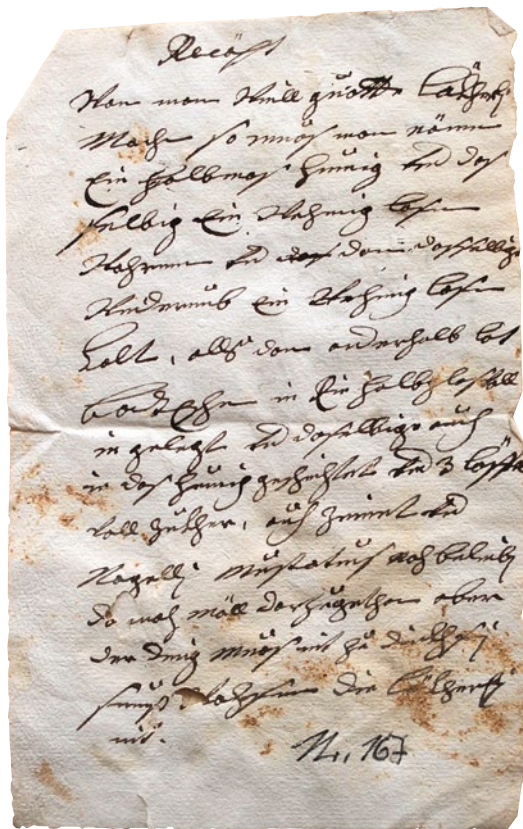 Recäpt
Wan man Will guotte Läkherlj
Machn so muos man nämen
Ein halbmas hunig vnd das
selbig Ein Wehnig lasen
Wahrmen vnd dan dassellbige
Widerumb Ein Wehnig lasen
kalt, allß dan anderhalb lot
in Ein halb glas voll
in gelegt vnd dasellbige auch
in das hunig geschichtet vnd 3 löffel
voll zukher, auch Zimet vnd
Nagellj Mustatnus noch beliebn
da noch Mäll darzugethan aber
der deig Muos nit zu dickh sy
sunst die Läkherlj
nit.
Nr. 167